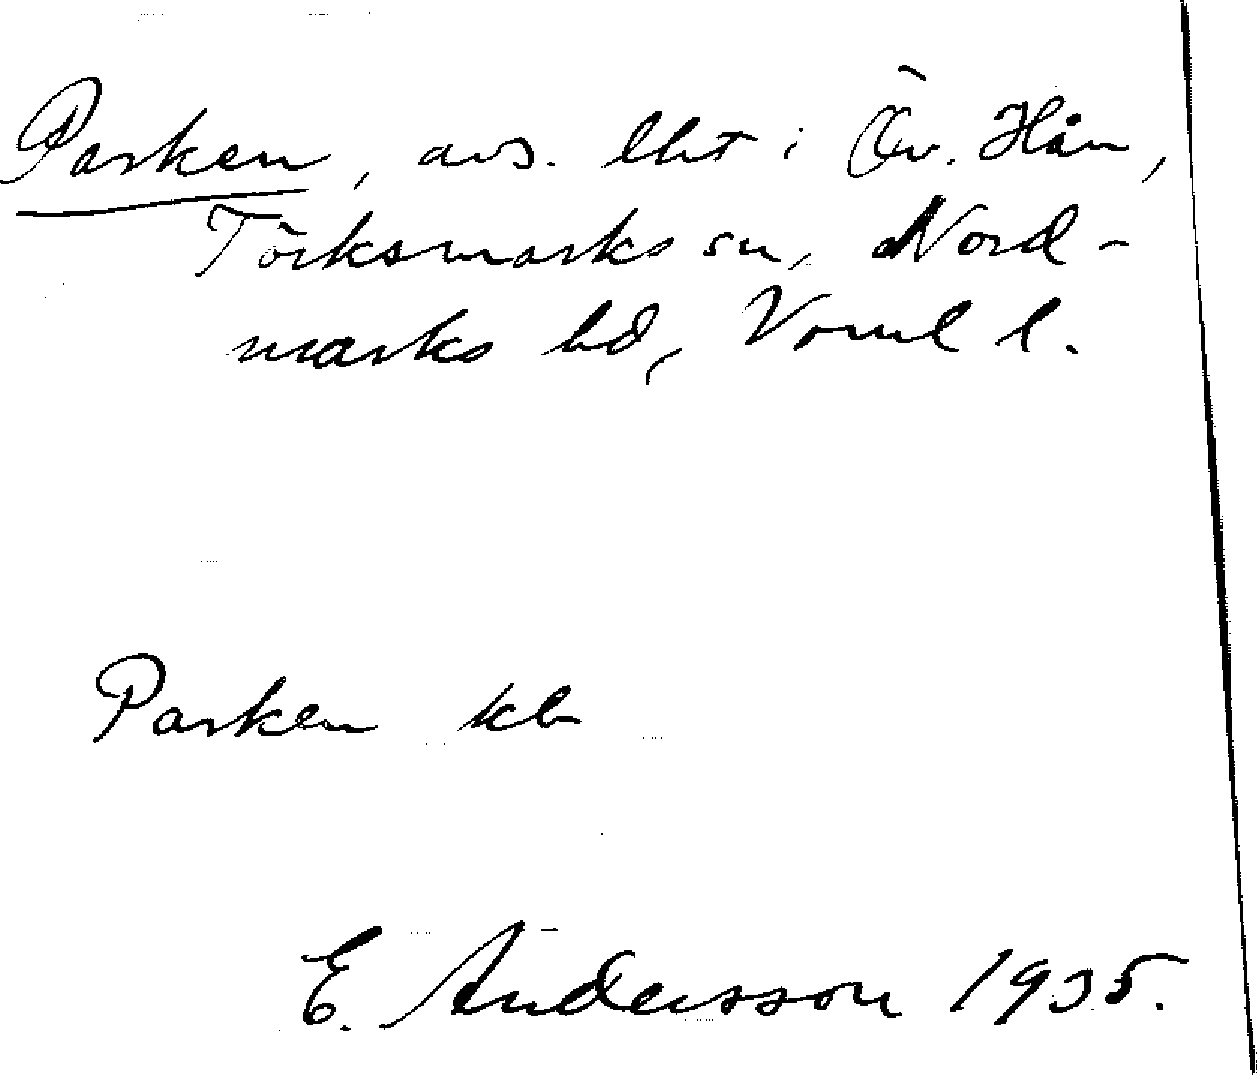 Parken, avs. lht i Öv. Hån,
Törksmarks sn, Nord-
marks hd, Vrml l.
Parken kb
E. Andersson 1935.